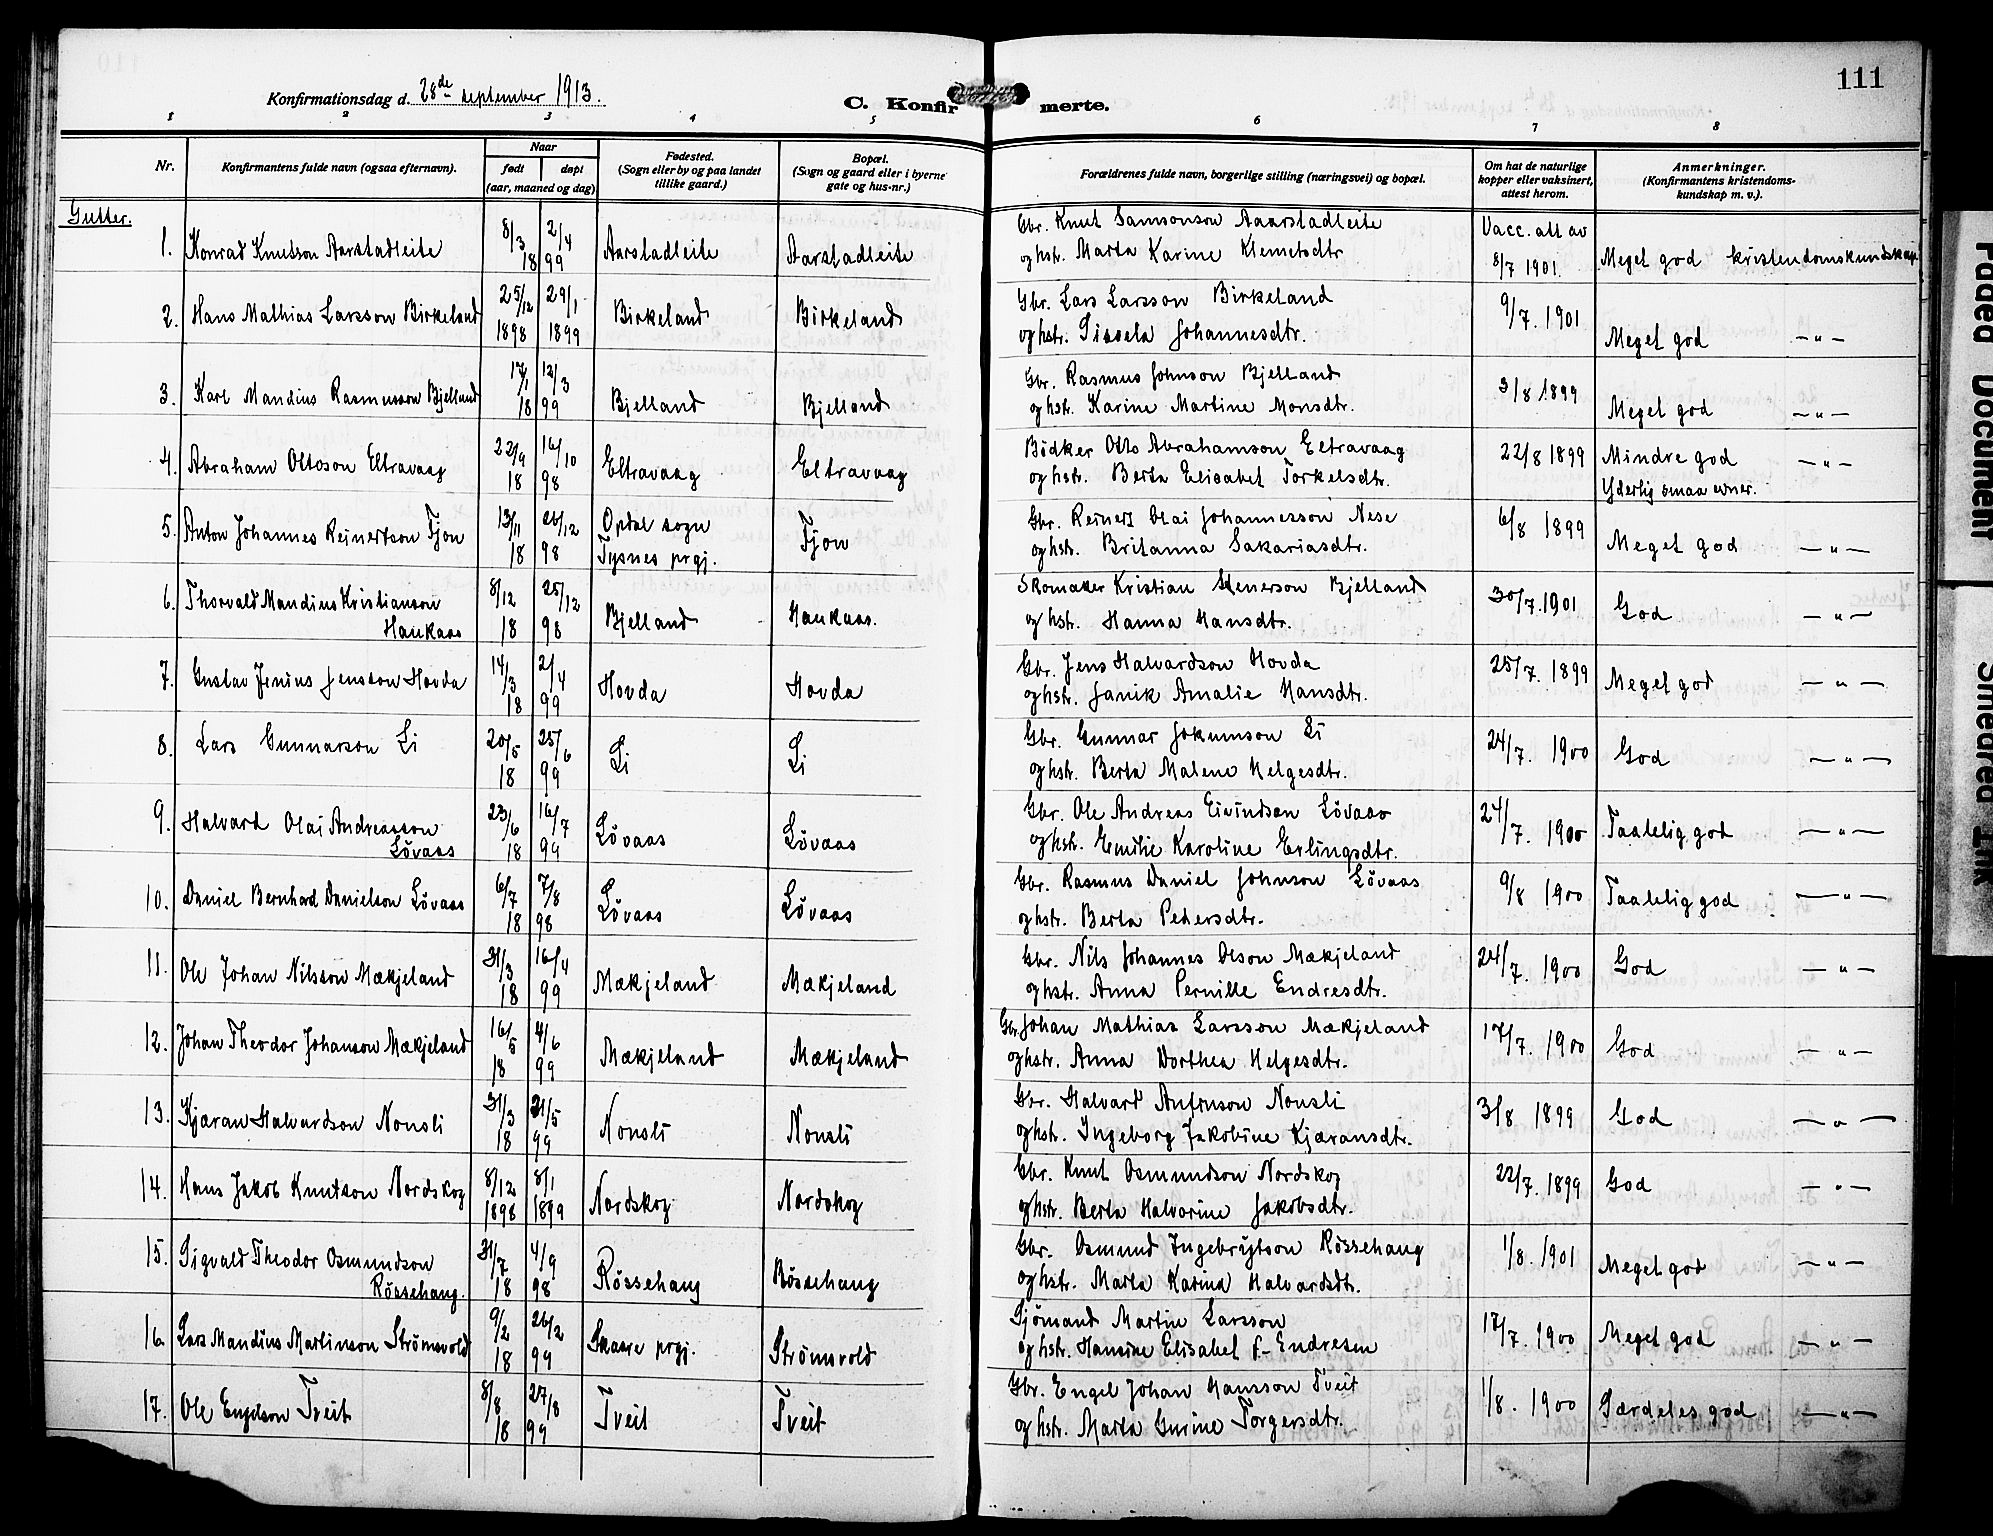 Konfirmationsdag d. 28de september 1913.
C. Konfirmerte.
111
1 2 3 4 5 6 7 8
Nr. Konfirmantens fulde navn (ogsaa efternavn). Naar født døpt (aar, maaned og dag) Fødested. (Sogn eller by og paa landet tillike gaard.) Bopæl. (Sogn og gaard eller i byerne gate og hus-nr.) Forældrenes fulde navn, borgerlige stilling (næringsvei) og bopæl. Om hat de naturlige kopper eller vaksinert, attest herom. Anmerkninger. (Konfirmantens kristendomskundskap m. v.).
Gutter.
1. Konrad Knutsson Aarstadleite 8/3 1899 2/4 Aarstadleite Aarstadleite Gbr. Knut Samsonson Aarstadleite Vacc. att av
og hstr. Marta Karine Klemetsdtr 8/7 1901. Meget god kristendomskundskap
2. Hans Mathias Larsson Birkeland 25/12 1898 29/1 1899 Birkeland Birkeland Gbr. Lars Larsson Birkeland 9/7. 1901
og hstr. Sissela Johannesdtr. Meget god —"—
3. Karl Mandius Rasmusson Bjelland 17/1 12/3 1899 Bjelland Bjelland Gbr. Rasmus Johnson Bjelland 3/8 1899
og hstr. Karine Martine Monsdtr. Meget god —"—
4. Abraham Ottoson Eltravaag 22/9 16/10 1898 Eltravaag Eltravaag Bødker Otto Abrahamson Eltravaag 22/8 1899 Mindre god —"—
og hstr. Berta Elisabet Torkelsdtr. Yderlig smaa evner.
5. Anton Johannes Reinertson Tjon 13/11 26/12 1898 Opdal sogn Tjon Gbr. Reinert Olai Johannesson Nese 6/8 1899
Tysnes prgj. og hstr. Britanna Sakariasdtr. Meget god —"—
6. Thorvald Mandius Kristianson 8/12 25/12 1898 Bjelland Haukaas. Skomaker Kristian Bjelland 30/7. 1901 God —"—
Haukaas og hstr. Hanna Hansdtr.
7. Gustav Jenius Jensson Hovda 14/3 2/4 1899 Hovda Hovda Gbr. Jens Halvardson Hovda 25/7. 1899
og hstr. Janik Amalie Hansdtr. Meget god —"—
8. Lars Gunnarson Li 20/5 25/6 1899 Li Li Gbr. Gunnar Jokumson Li 24/7. 1900 God —"—
og hstr. Berta Malene Helgesdtr.
9. Halvard Olai Andreasson 23/6 16/7 1899 Løvaas Løvaas Gbr. Ole Andreas Eivindsen Løvaas 24/7. 1900 Taalelig god —"—
Løvaas og hstr. Emilie Karoline Erlingsdtr.
10. Daniel Bernhard Danielson Løvaas 6/7 7/8 1898 Løvaas Løvaas Gbr. Rasmus Daniel Johnson Løvaas 9/8 1900 Taalelig god —"—
og hstr. Berta Pedersdtr.
11. Ole Johan Nilsson Mækjeland 31/3 16/4 1899 Mækjeland Mækjeland Gbr. Nils Johannes Olson Mækjeland 24/7. 1900 God —"—
og hstr. Anna Pernille Endresdtr.
12. Johan Theodor Johanson Mækjeland 16/5 4/6 1899 Mækjeland Mækjeland Gbr. Johan Mathias Larsson Mækjeland 17/7. 1900 God —"—
og hstr. Anna Dorthea Helgesdtr.
13. Kjæran Halvardson Nonsli 31/3 21/5 1899 Nonsli Nonsli Gbr. Halvard Nonsli 3/8 1899 God —"—
og hstr. Ingeborg Jakobine Kjæransdtr.
14. Hans Jakob Knutson Nordskog 8/12 1898 8/1 1899 Nordskog Nordskog Gbr. Knut Osmundson Nordskog 22/7. 1899 God —"—
og hstr. Berta Halvorine Jakobsdtr.
15. Sigvald Theodor Osmundson 31/7 4/9 1898 Røssehaug Røssehaug Gbr. Osmund Ingebrigtson Røssehaug 1/8. 1901 Meget god —"—
Røssehaug. og hstr. Marta Karina Halvardsdtr.
16. Lars Mandius Martinson Strømsvold 9/2 26/2 1899 Skaare prgj. Strømsvold Sjømand Martin Larsson 17/7. 1900 Meget god —"—
og hstr. Hansine Elisabet f. Endresen
17. Ole Engelson Tveit 8/8 27/8 1899 Tveit Tveit Gbr. Engel Johan Hansson Tveit 1/8. 1900 Særdeles god —"—
og hstr. Marta Gurine Torgersdtr.
Faded Document
Smeared Ink